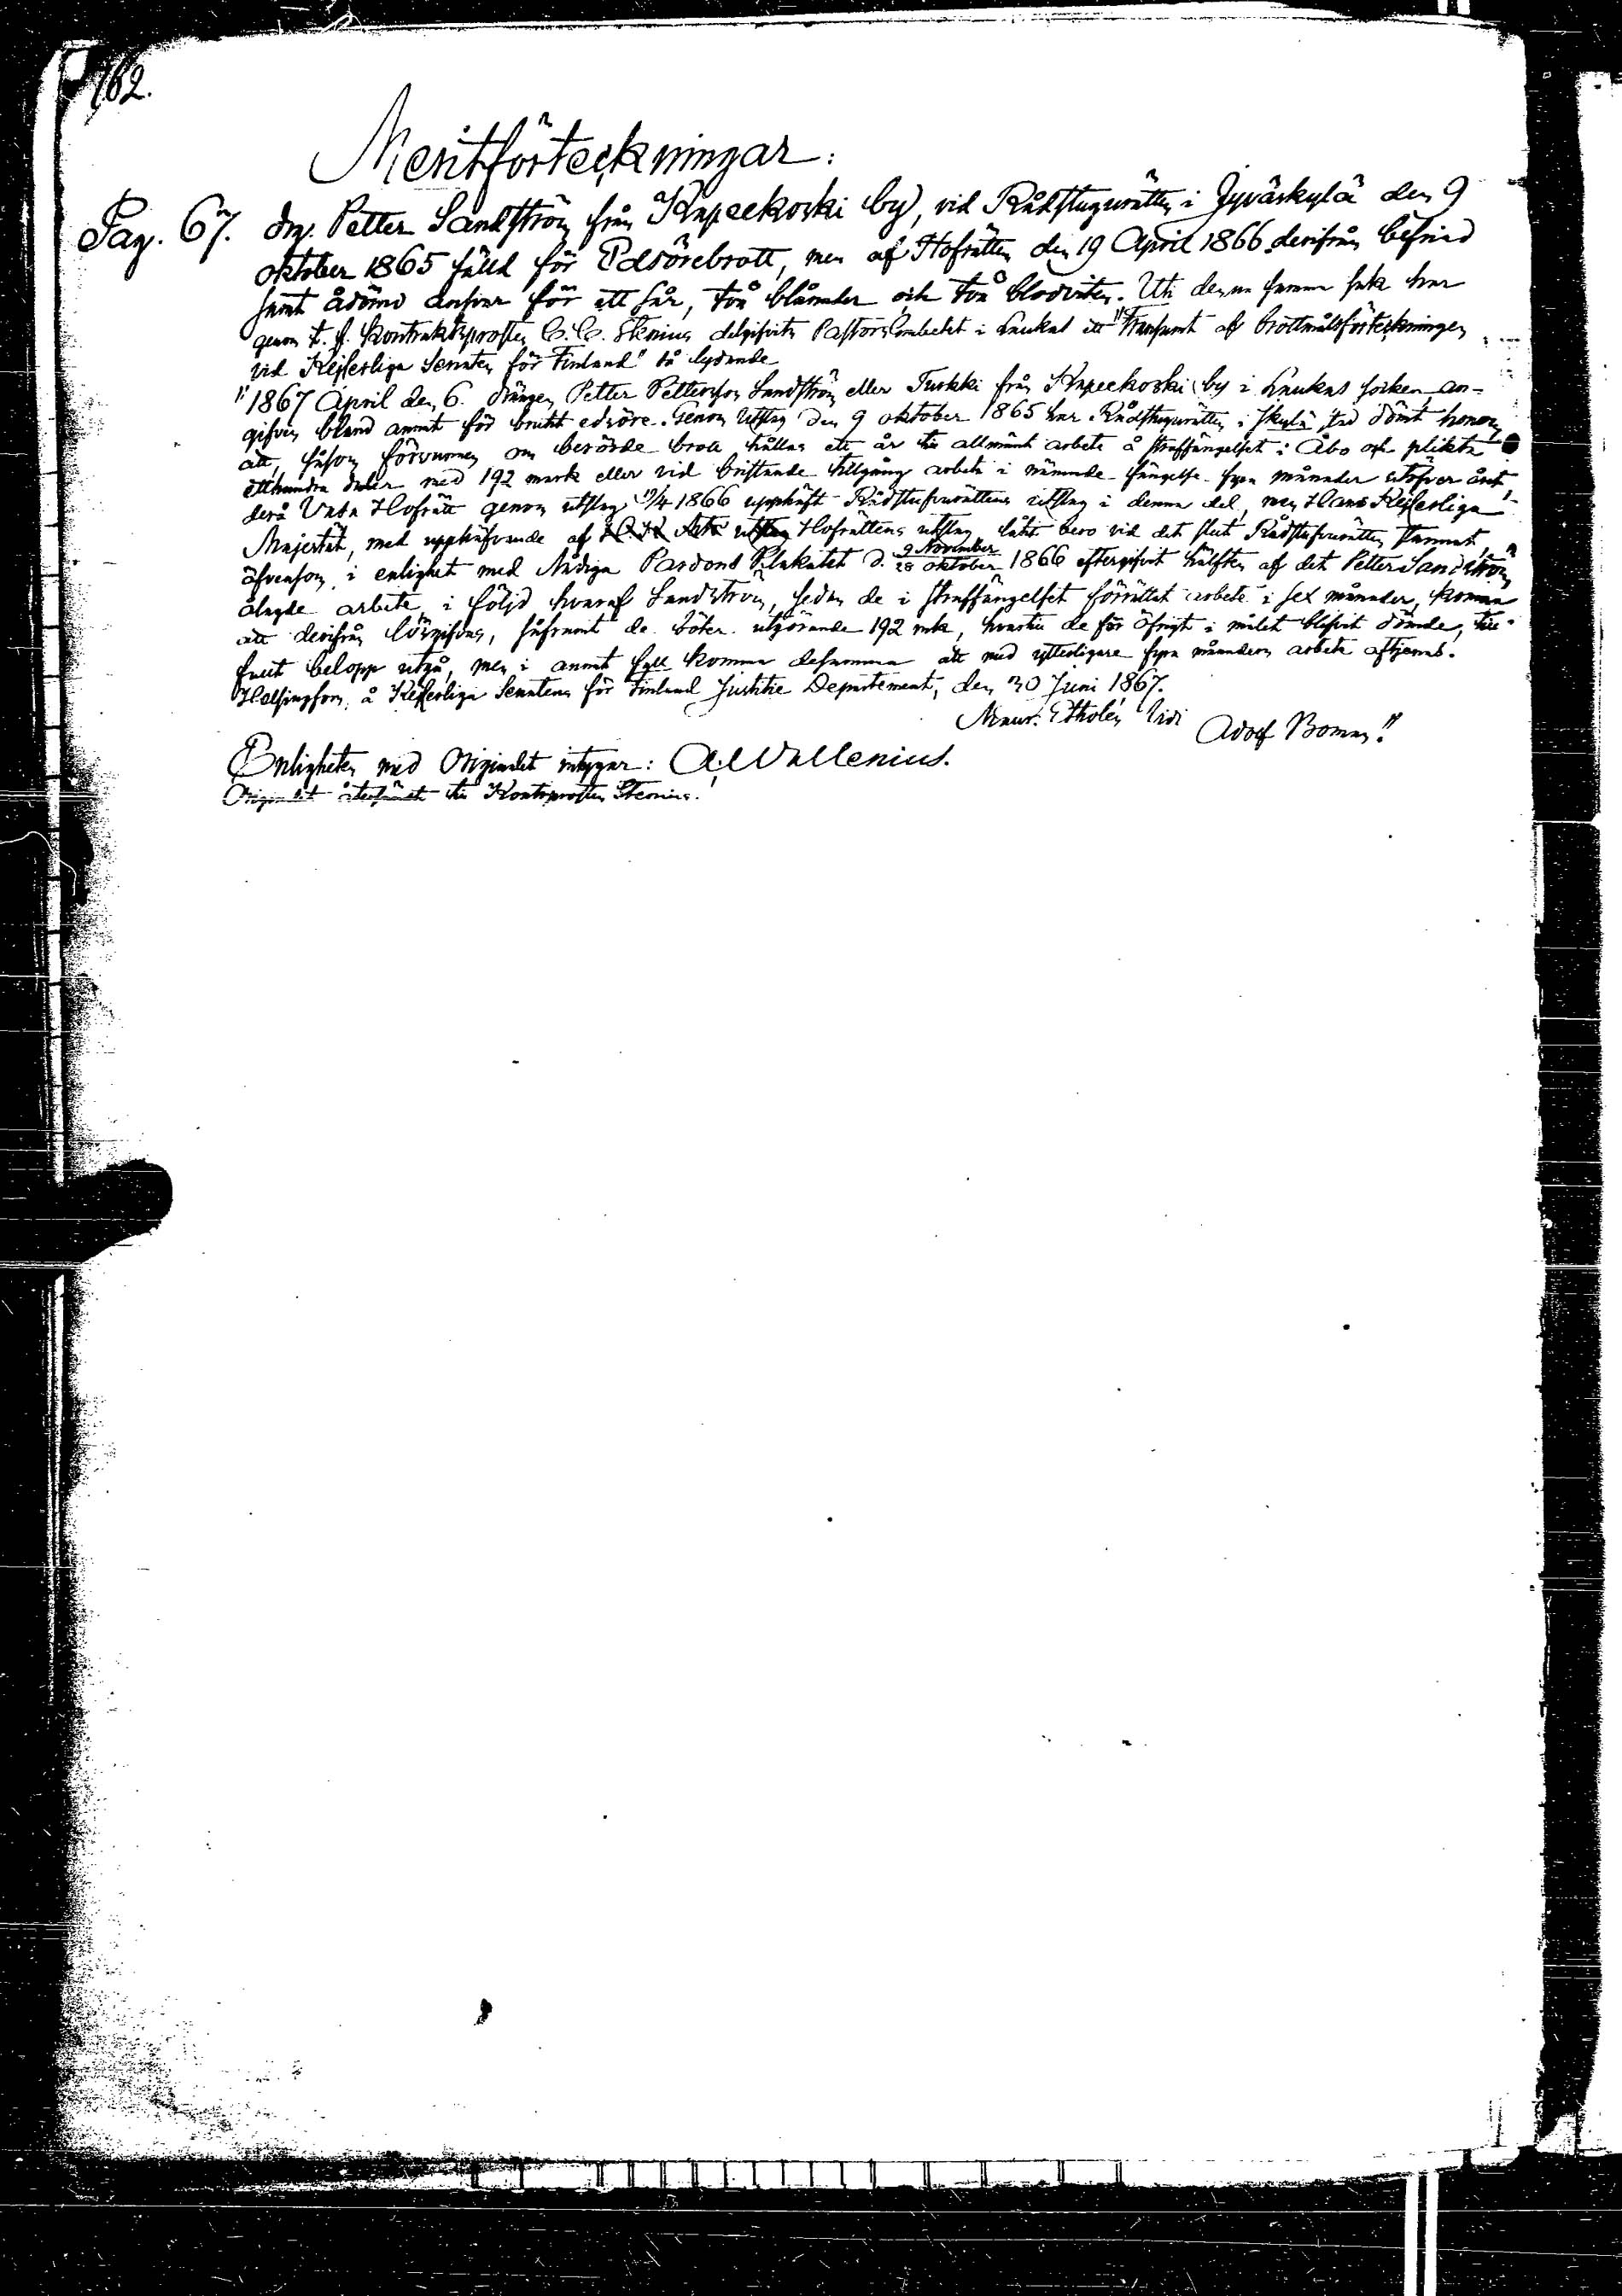 162.
Meritförteckningar:
Pag. 67. drg. Petter Sandström från Kapeekoski by, vid Rådstugurätten i Jyväskylä den 9
oktober 1865 fälld för Edsörebrott, men af Hofrätten den 19 April 1866 derifrån befriad
samt ådömd ansvar för ett sår, två blånader och två blodviten. Uti denna samma sak har
genom t. f. Kontraktsprosten C. C. Stenius delgifvits Pastors Embetet i Laukas ett "Transumt af brottmålsförteckningen
vid Kejserliga Senaten för Finland" så lydande
"1867 April den 6. Drängen Petter Pettersson Sandström eller Turkki från Kapeekoski by i Laukas socken, an-
gifven bland annat för brutit edsöre. Genom Utslag den 9 oktober 1865 har Rådstugurätten i Jkylä stad dömt honom
att, såsom förvunnen om berörde brott hållas ett år till allmänt arbete å straffängelset i Åbo och plikta
etthundra daler med 192 mark eller vid bristande tillgång arbeta i nämnde fängelse fyra månader utöfver året,
derå Vasa Hofrätt genom utslag 19/4 1866 upphäft Rådstufvurättens utslag i denna del, men Hans Kejserliga
Majestät, med upphäfvande af Hofrättens utslag låtit bero vid det slut Rådstufvurätten stannat,
äfvensom i enlighet med Nådiga Pardons Plakatet d. 9 November / 28 oktober 1866 eftergifvit hälften af det Petter Sandström
ålagde arbete, i följd hvaraf Sandström, sedan de i straffängelset förrättat arbete i sex månader, komma
att derifrån lösgifvas, såframt de böter utgörande 192 mk, hvartill de för öfrigt i målet blifvit dömde, till
fullt belopp utgå, men i annat fall komma desamma att med ytterligare fyra månaders arbete aftjenas.
Helsingfors, å Kejserliga Senatens för Finland Justitie Departement, den 30 Juni 1867.
Etholén Vidi Adolf Boman."
Enligheten med Originalet intygar: A. Wallenius.
Originalet återsändt till Kontr.prosten Stenius.